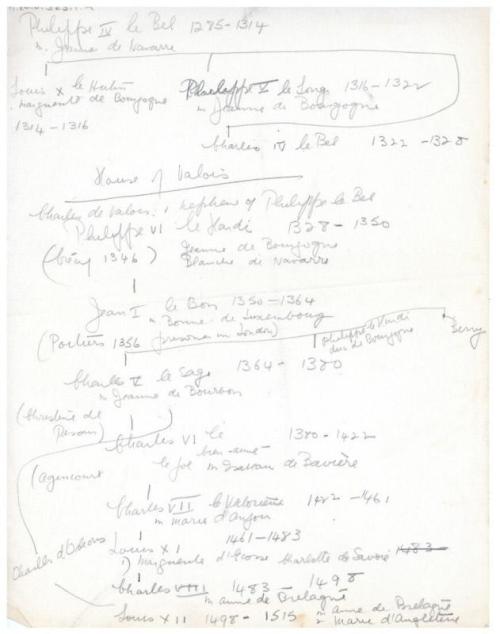 Philippe IV le Bel 1285-1314
m. Jeanne de Navarre
Louis X le Hutin
Marguerite de Bourgogne
1314-1316
Philippe V le Long 1316-1322
m Jeanne de Bourgogne
Charles IV le Bel 1322-1328
House of Valois
Charles de Valois, nephew of Philippe le Bel
Philippe VI le Hardi 1328-1350
(Crécy 1346)
Jeanne de Bourgogne
Blanche de Navarre
Jean I le Bon 1350-1364
m Bonne de Luxembourg
(Poitiers 1356 prisoner in London)
Philippe le Hardi
duc de Bourgogne
Berry
Charles V le Sage 1364-1380
m Jeanne de Bourbon
(Christine de Pisan)
Charles VI le bien-aimé 1380-1422
le fol m Isabeau de Bavière
(Agencourt
Charles VII le Valorieux 1422-1461
m Marie d'Anjou
Charles d'Orleans
Louis XI 1461-1483
1) Marguerite d'Ecosse Charlotte de Savoie 1483-
Charles VIII 1483-1498
m Anne de Bretagne
Louis XII 1498-1515
m Anne de Bretagne
2 Marie d'Angleterre